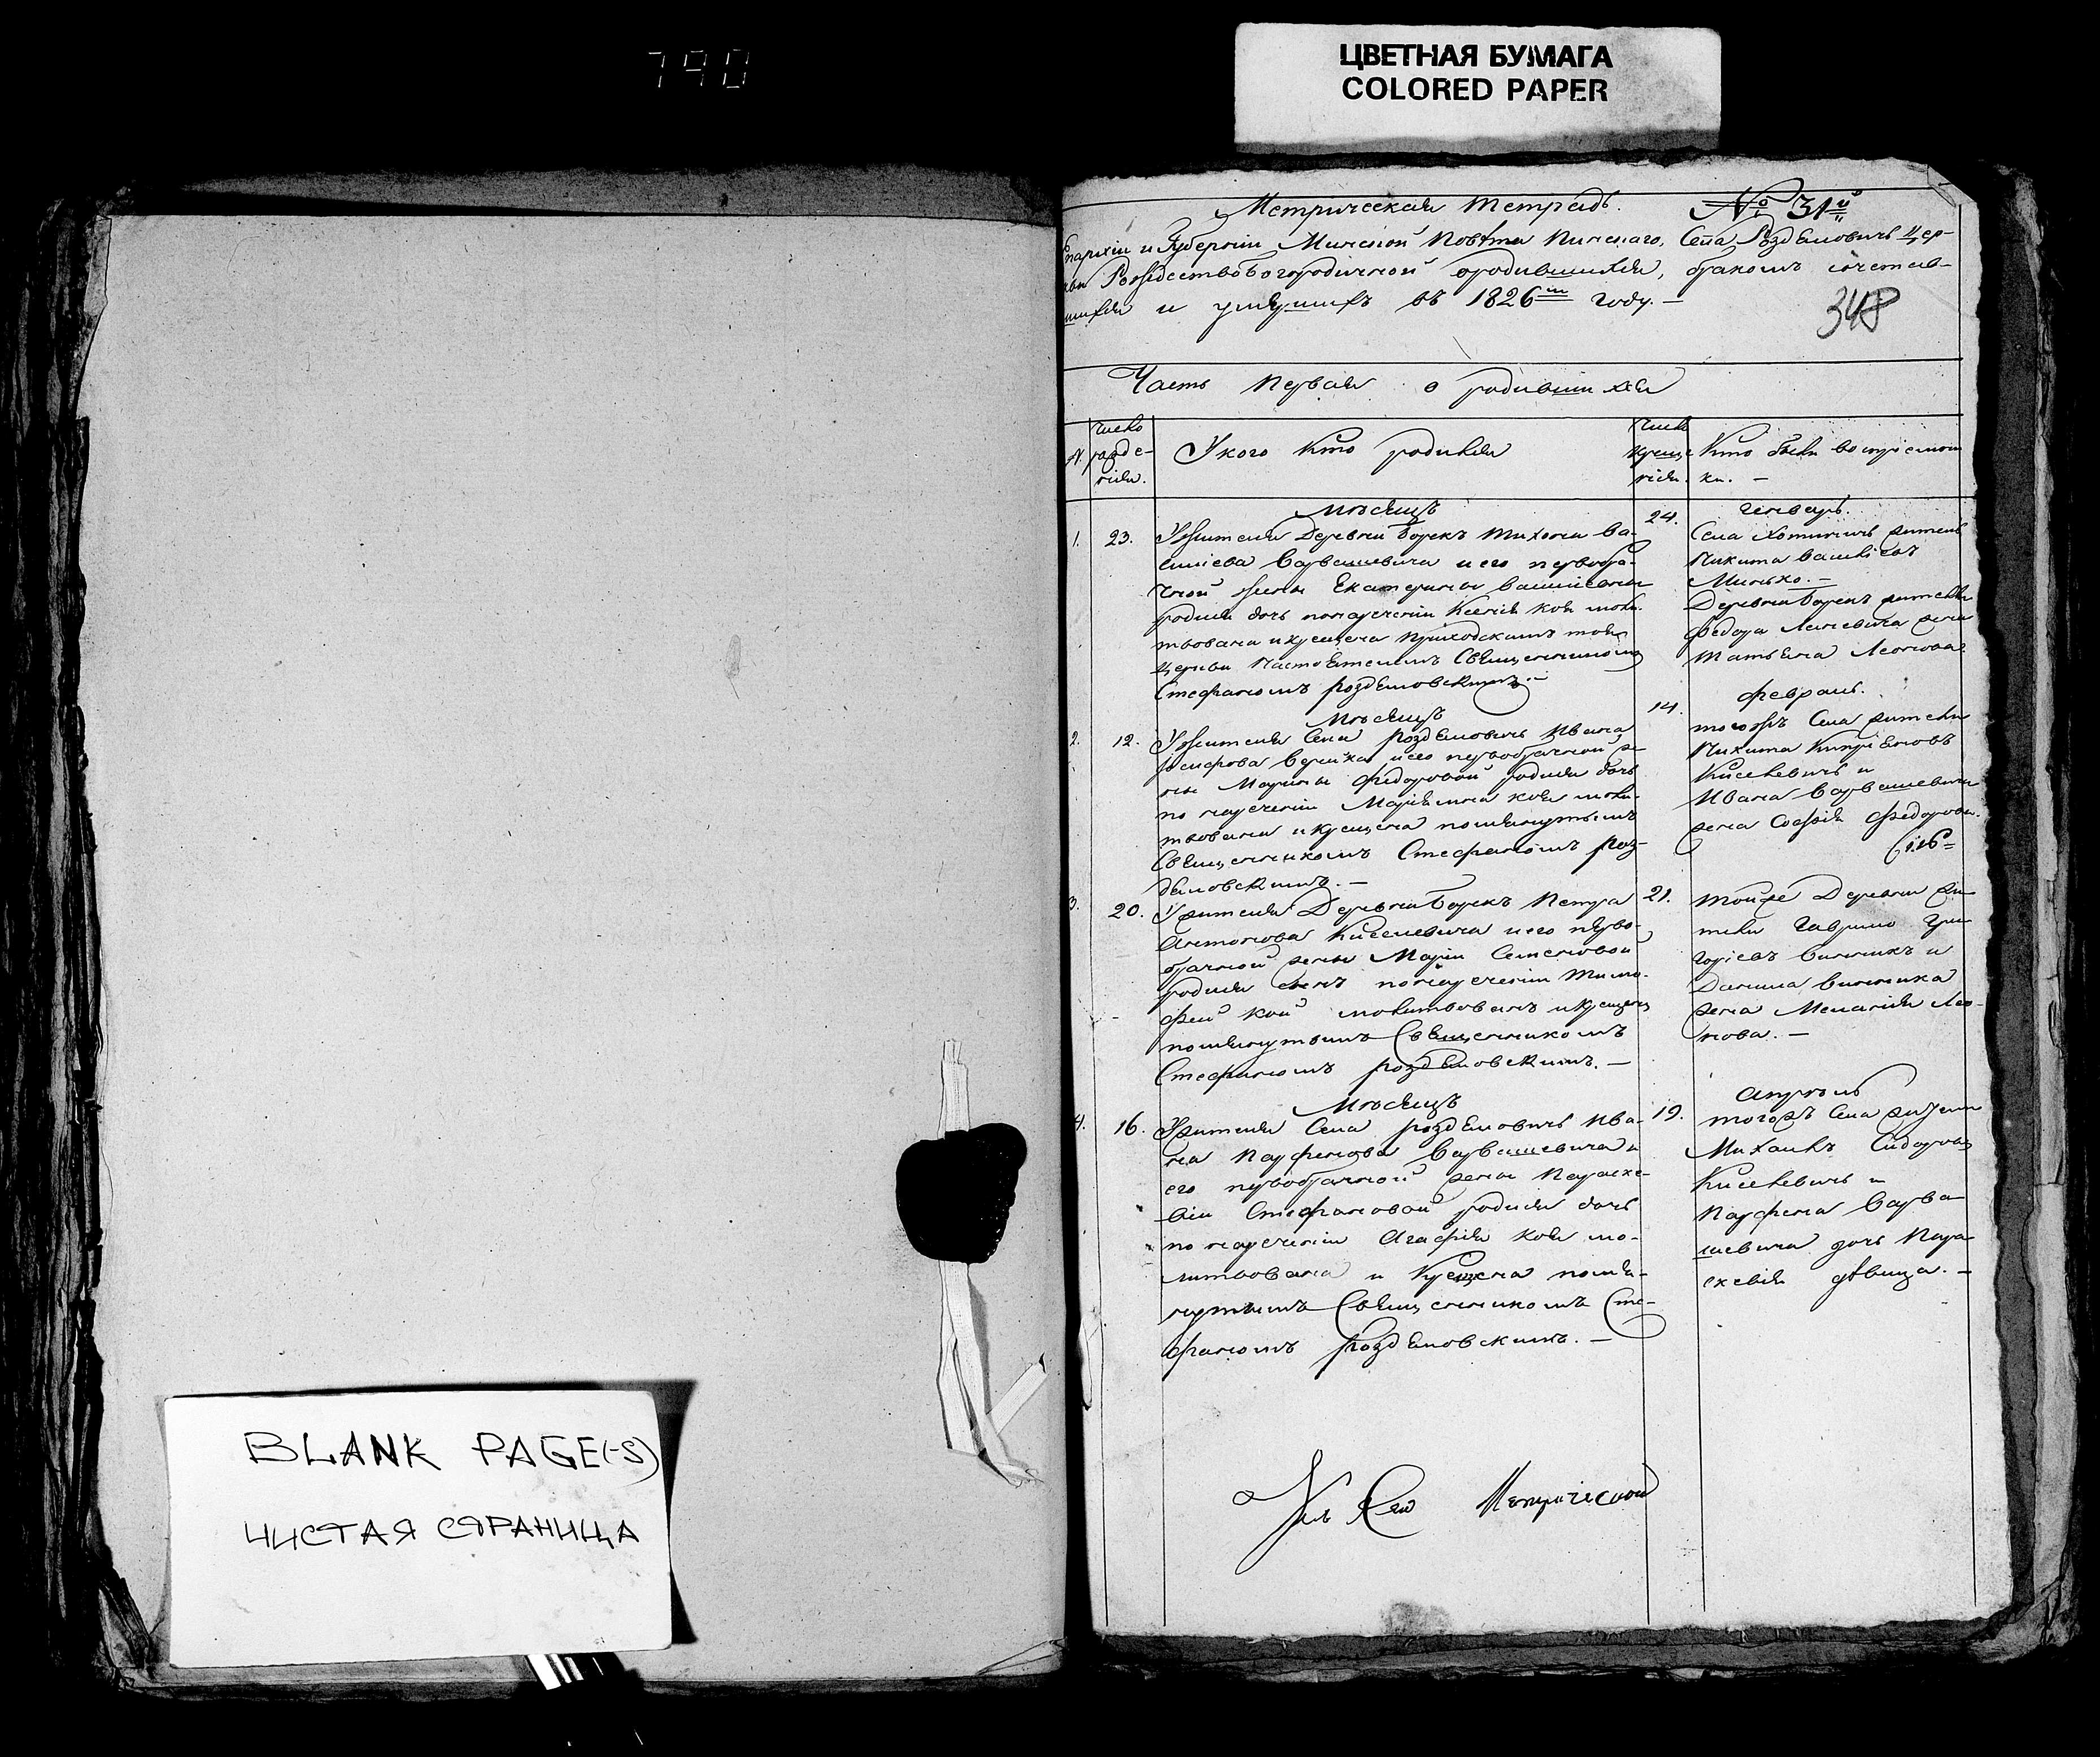 790
ЦВЕТНАЯ БУМАГА
COLORED PAPER
BLANK PAGE(-S)
ЧИСТАЯ СТРАНИЦА
Метрическая тетрадь. № 31й
Епархіи и Губерніи Минской Повѣта Пинскаго, Села Роздѣловичъ Цер-
кви Рождествобогородичной о родившихся, бракомъ сочетав-
шихся и умершихъ въ 1826м году. —
348
Часть первая о родившихся
N. Число рожде- нія.
У кого кто родился
Число креще нія.
Кто были воспріемни ки. —
Мѣсяцъ
Генварь.
1. 23.
У жителя Деревни Борекъ Тихона Ва-
силіева Варвашевича и его первобра-
чной жены Екатерины Василіевны
родися дочь по наречении Ксенія коя моли-
твована и крещена приходскимъ тоя
Церкви Настоятелемъ Священникомъ
Стефаномъ Роздѣловскимъ. —
24.
Села Хотыничъ житель
Никита Василіевъ
Минько. —
Деревни Борекъ жителя
Федора Леневича жена
Татьяна Леонова
Мѣсяцъ
Февраль.
2. 12.
У жителя Села Роздѣловичъ Ивана
Іосифова и его первобрачной же-
ны Марины Федоровой родися дочь
по нареченіи Маріянна коя моли-
твована и крещена помянутымъ
Священникомъ Стефаномъ Роз-
дѣловскимъ. —
14.
тогожъ Села житель
Никита Кипріяновъ
Киселевичъ и
Ивана Варвашевича
жена Софія Федорова.
3. 20.
У жителя Деревни Борекъ Петра
Антонова Киселевича и его перво-
брачной жены Маріи Семеновой
родися сынъ по нареченіи Тимо-
фей кой молитвованъ и крещенъ
помянутымъ Священникомъ
Стефаномъ Роздѣловскимъ. —
21.
тойже Деревни жи-
тели Гаврило Гри-
горіевъ Винникъ и
Данила Винника
жена Меланія Лео-
нова. —
Мѣсяцъ
Апрѣль
4. 16.
У жителя Села Роздѣловичъ Ива-
на Парфенова Варвашевича и
его первобрачной жены Параске-
віи Стефановой родися дочь
по нареченіи Агафія коя мо-
литвована и Крещена помя-
нутымъ Священникомъ Сте-
фаномъ Роздѣловскимъ. —
19.
тогожъ Села жители
Михаилъ Сидоровъ
Киселевичъ и
Парфена Варва
шевича дочь Пара
скевія дѣвица. —
Къ Сей Метрической